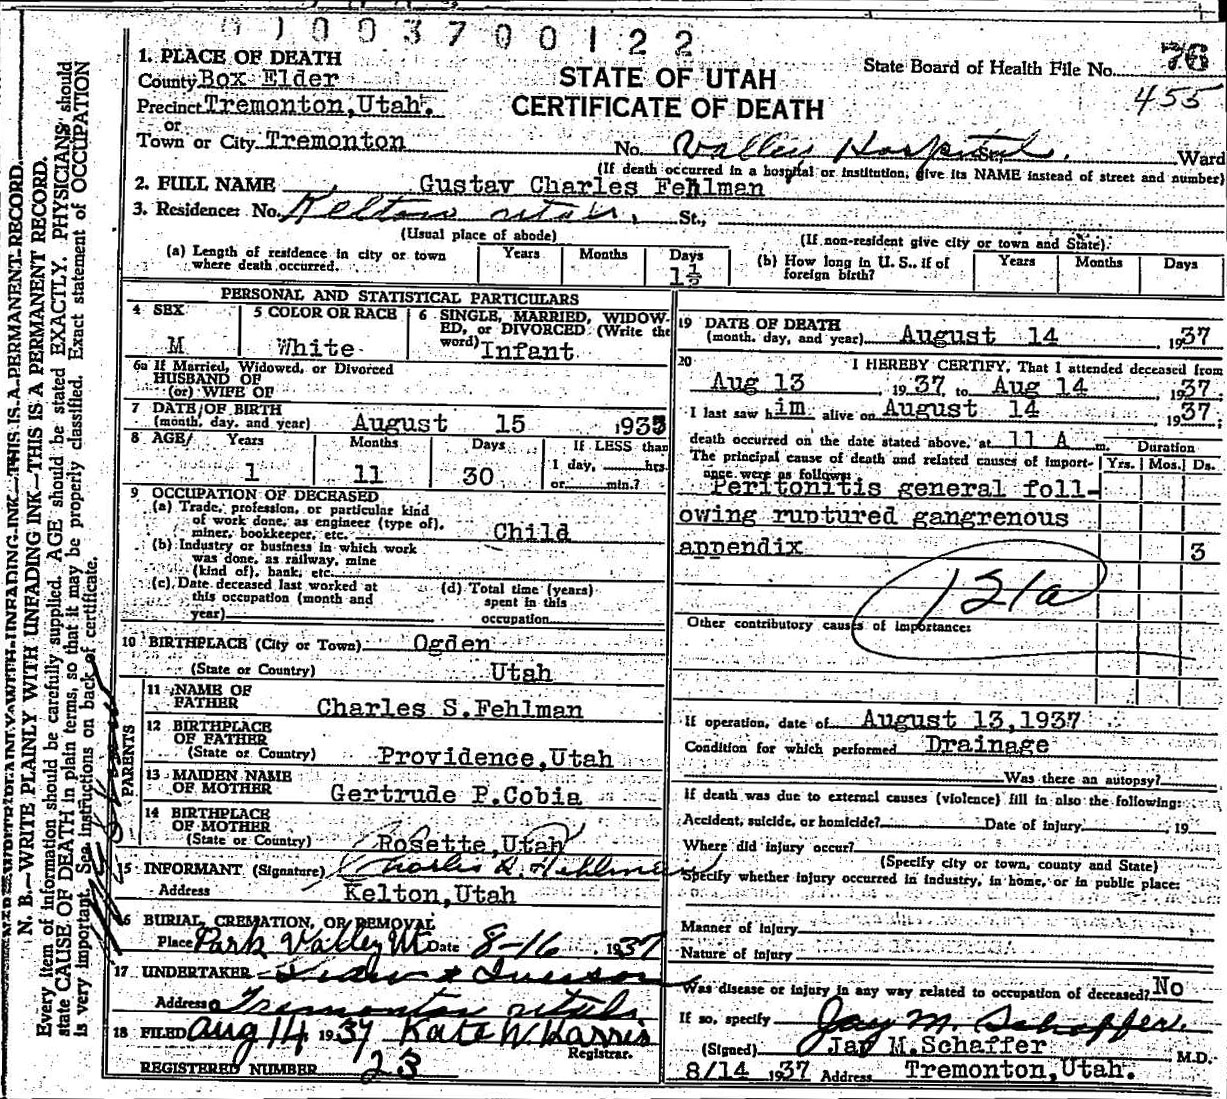 0 1 0 0 3 7 0 0 1 2 2
1. PLACE OF DEATH
County Box Elder
Precinct Tremonton,Utah.
or
Town or City Tremonton
STATE OF UTAH
CERTIFICATE OF DEATH
State Board of Health File No. 76
455
No. Valley Hospital St. Ward
(If death occurred in a hospital or institution, give its NAME instead of street and number)
2. FULL NAME Gustav Charles Fehlman
3. Residence: No. Kelton Utah. St.,
(Usual place of abode)
(If non-resident give city or town and State).
(a) Length of residence in city or town where death occurred. Years Months Days 1½
(b) How long in U. S., if of foreign birth? Years Months Days
PERSONAL AND STATISTICAL PARTICULARS
4 SEX M
5 COLOR OR RACE White
6 SINGLE, MARRIED, WIDOWED, or DIVORCED (Write the word) Infant
6a If Married, Widowed, or Divorced
HUSBAND OF
(or) WIFE OF
7 DATE OF BIRTH
(month, day, and year) August 15 1935
8 AGE Years Months Days If LESS than
1 11 30 1 day, hrs.
or min.?
9 OCCUPATION OF DECEASED
(a) Trade, profession, or particular kind
of work done, as engineer (type of),
miner, bookkeeper, etc. Child
(b) Industry or business in which work
was done, as railway, mine
(kind of), bank, etc.
(c) Date deceased last worked at
this occupation (month and
year)
(d) Total time (years)
spent in this
occupation
10 BIRTHPLACE (City or Town) Ogden
(State or Country) Utah
PARENTS
11 NAME OF
FATHER Charles S.Fehlman
12 BIRTHPLACE
OF FATHER
(State or Country) Providence,Utah
13 MAIDEN NAME
OF MOTHER Gertrude P.Cobia
14 BIRTHPLACE
OF MOTHER
(State or Country) Rosette,Utah
15 INFORMANT (Signature) Charles Fehlman
Address Kelton,Utah
16 BURIAL, CREMATION, OR REMOVAL
Place Park Valley Ut Date 8-16 1937
17 UNDERTAKER
Address Tremonton Utah
18 FILED Aug 14 1937 Kate W. Harris
Registrar.
REGISTERED NUMBER 23
19 DATE OF DEATH
(month, day, and year) August 14 , 1937
20 I HEREBY CERTIFY, That I attended deceased from
Aug 13 , 1937, to Aug 14 , 1937;
I last saw him alive on August 14 , 1937;
death occurred on the date stated above, at 11 A m. Duration
The principal cause of death and related causes of importance were as follows: Yrs. Mos. Ds.
Peritonitis general foll-
owing ruptured gangrenous
appendix 3
121a
Other contributory causes of importance:
If operation, date of August 13,1937
Condition for which performed Drainage
Was there an autopsy?
If death was due to external causes (violence) fill in also the following:
Accident, suicide, or homicide? Date of injury , 19
Where did injury occur?
(Specify city or town, county and State)
Specify whether injury occurred in industry, in home, or in public place:
Manner of injury
Nature of injury
Was disease or injury in any way related to occupation of deceased? No
If so, specify
Jay M. Schaffer
(Signed) Jay M.Schaffer M.D.
8/14 1937 Address Tremonton,Utah.
N. B.—WRITE PLAINLY WITH UNFADING INK—THIS IS A PERMANENT RECORD.
Every item of information should be carefully supplied. AGE should be stated EXACTLY. PHYSICIANS should
state CAUSE OF DEATH in plain terms, so that it may be properly classified. Exact statement of OCCUPATION
is very important. See instructions on back of certificate.